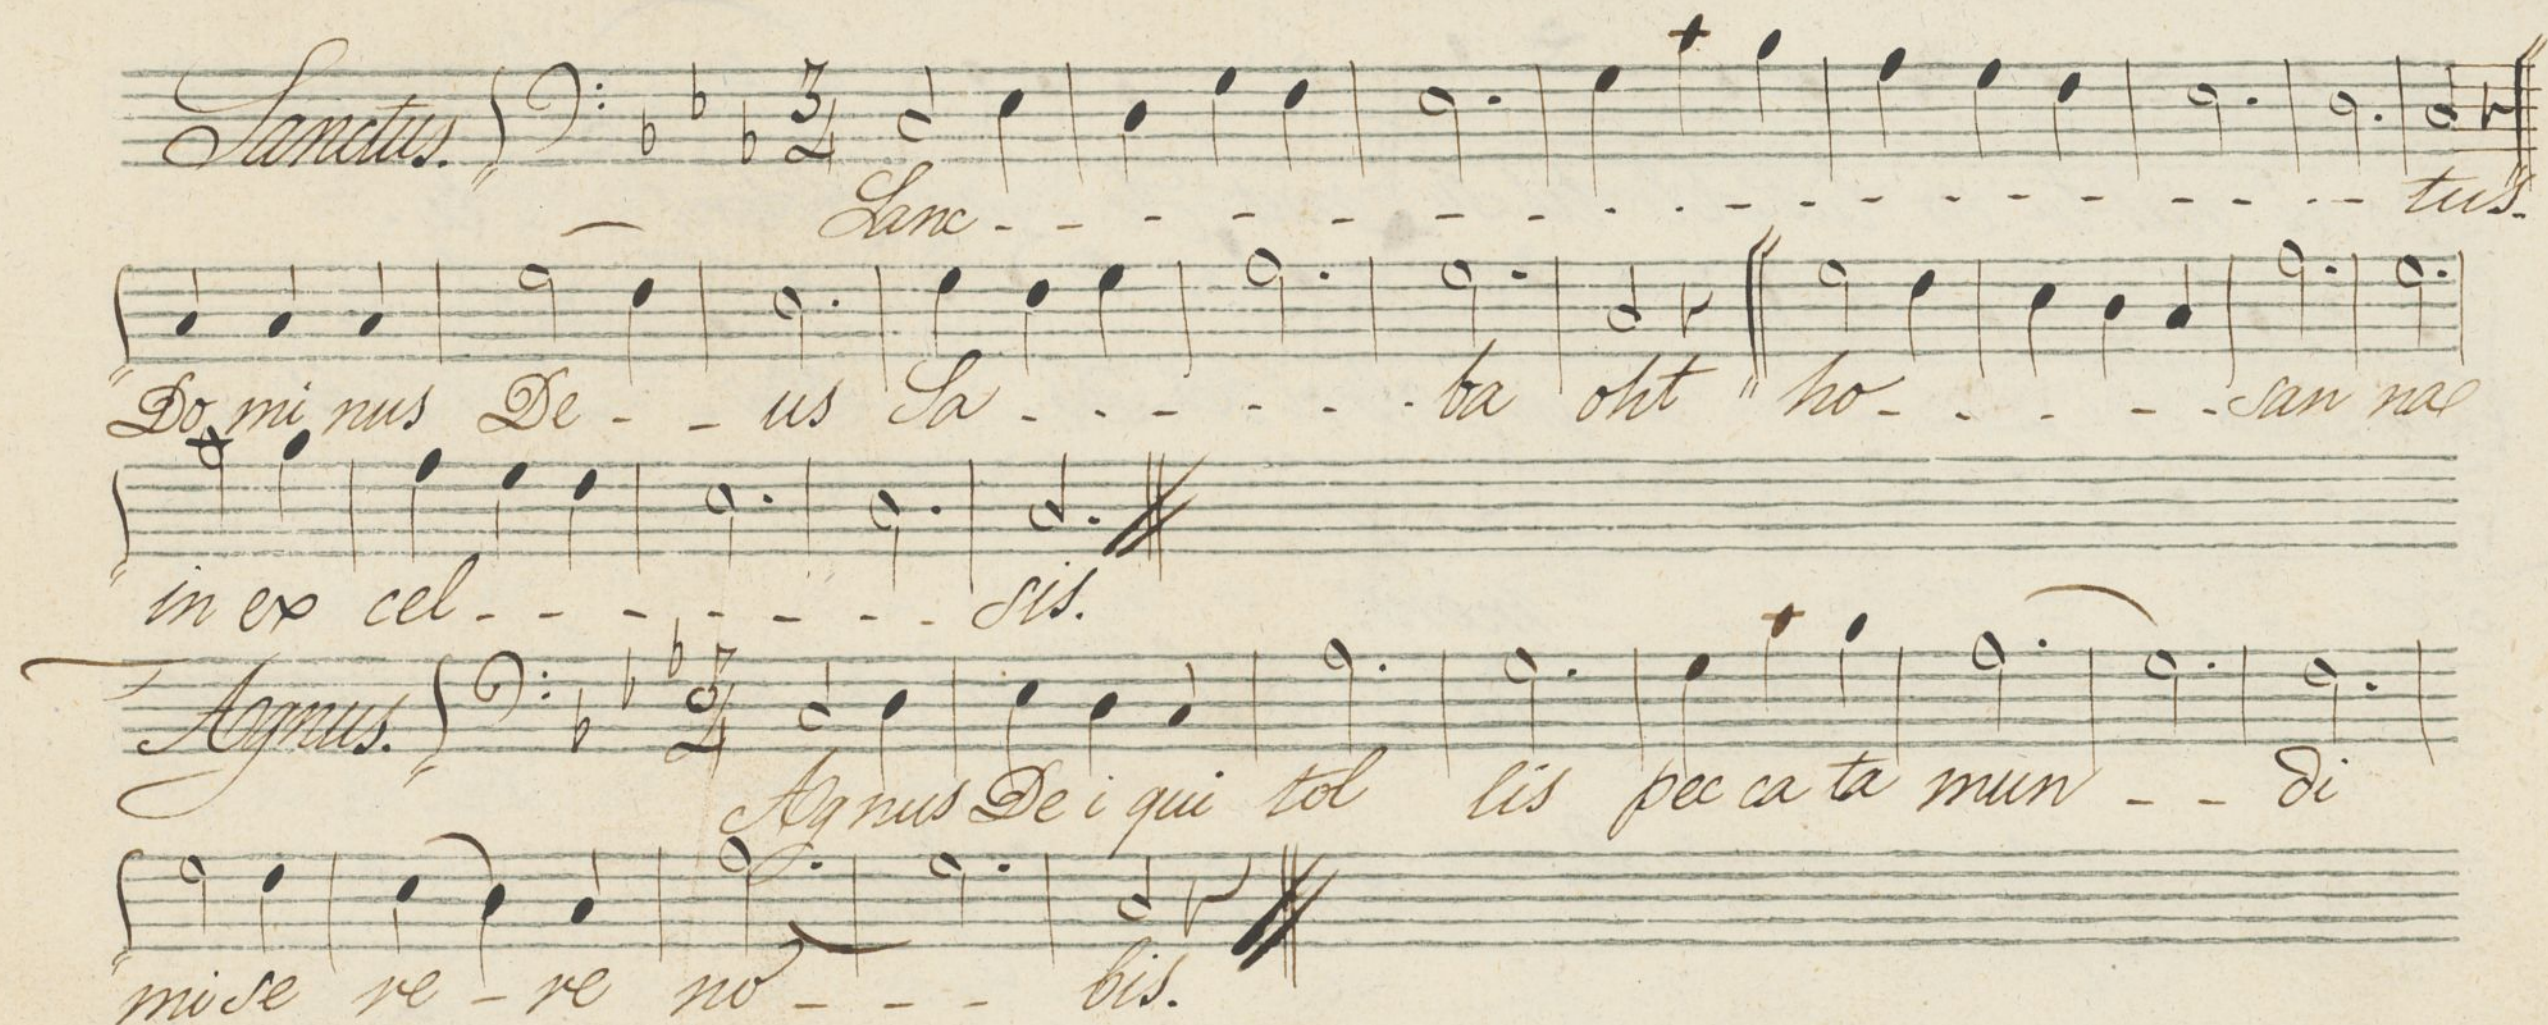 Sanctus. 3/4
Sanc - - - - - - - - - - - - - - - - - - tus.
Do mi nus De - - us Sa - - - - - - ba oht ho - - - - - san na
in ex cel - - - - - - - sis.
Agnus. 3/4
Ag nus De i qui tol lis pec ca ta mun - - di
mi se re - re no - - - bis.